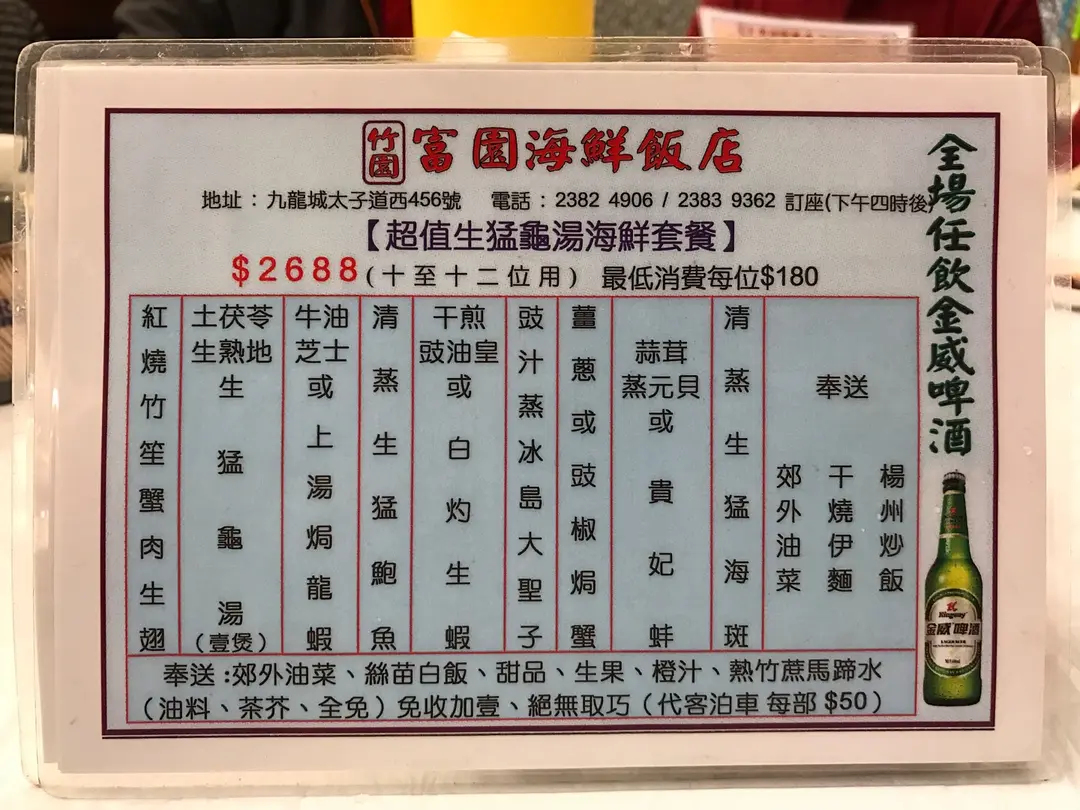 竹園 富園海鮮飯店
地址：九龍城太子道西456號 電話：2382 4906 / 2383 9362 訂座(下午四時後)
【超值生猛龜湯海鮮套餐】
$2688(十至十二位用) 最低消費每位$180
紅燒竹笙蟹肉生翅
土茯苓
生熟地
生猛龜湯
(壹煲)
牛油
芝士
或上湯焗龍蝦
清蒸生猛鮑魚
干煎
豉油皇
或白灼生蝦
豉汁蒸冰島大聖子
薑蔥或豉椒焗蟹
蒜茸
蒸元貝
或貴妃蚌
清蒸生猛海斑
奉送
郊外油菜
干燒伊麵
楊州炒飯
奉送:郊外油菜、絲苗白飯、甜品、生果、橙汁、熱竹蔗馬蹄水
(油料、茶芥、全免)免收加壹、絕無取巧(代客泊車 每部 $50)
全場任飲金威啤酒
Kingway
金威啤酒